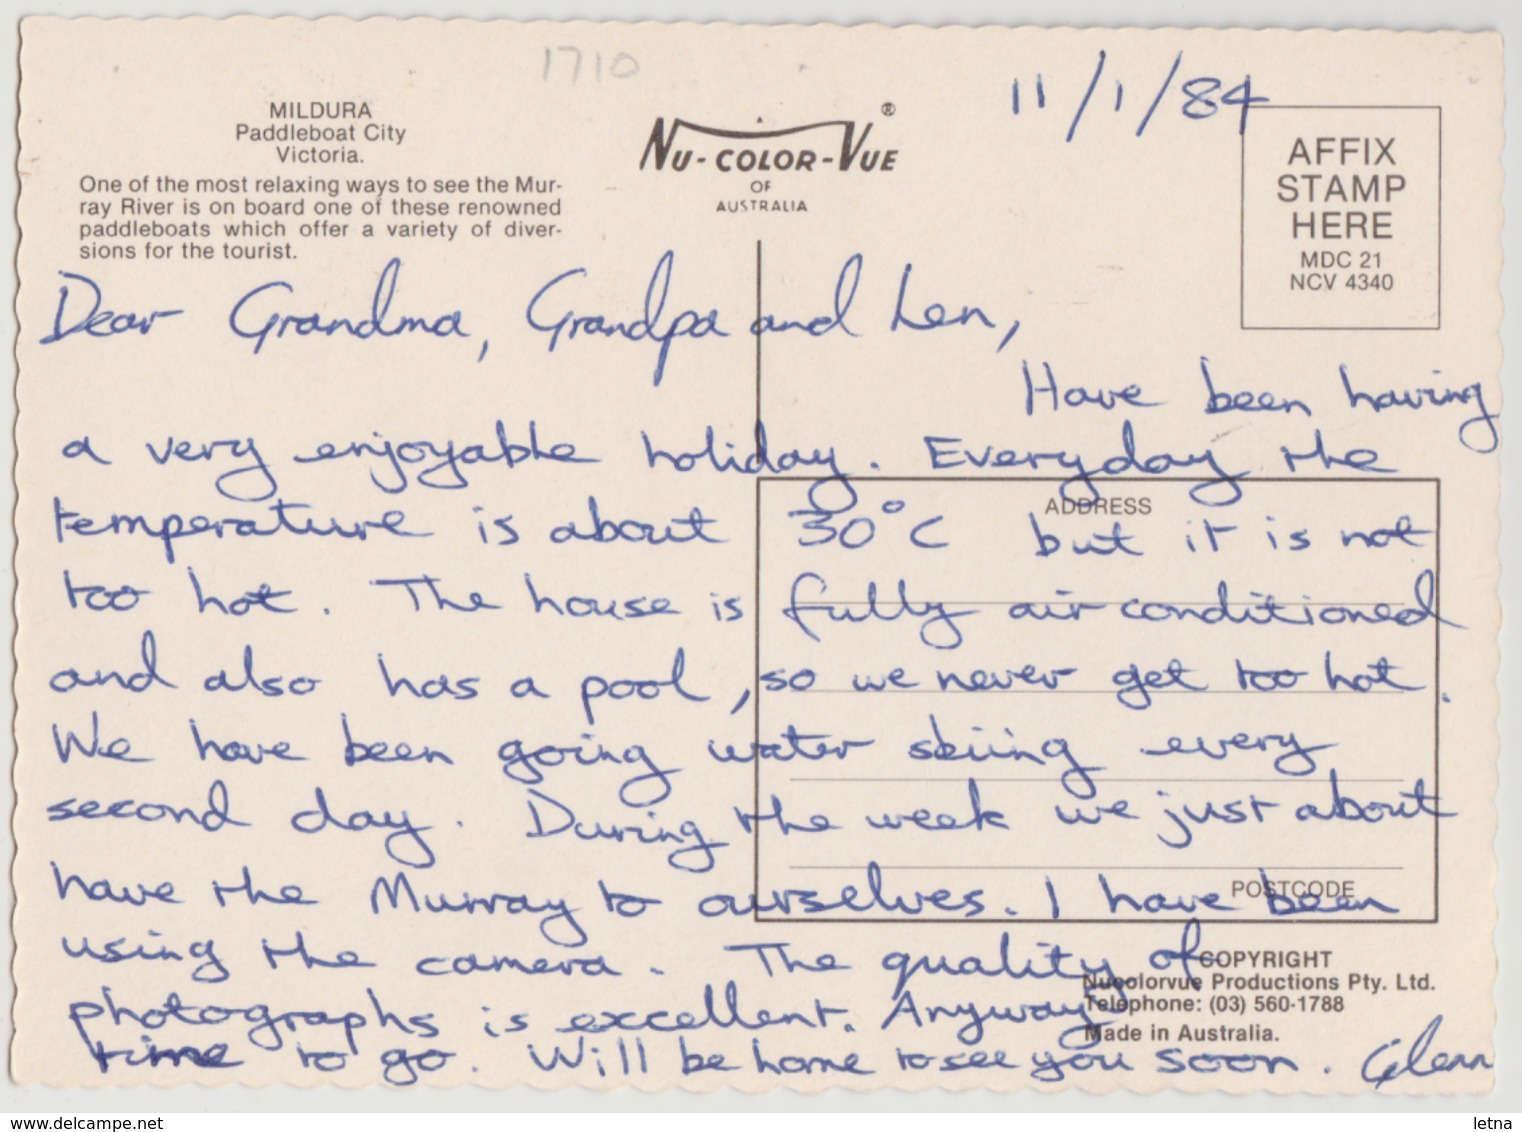 1710
11/1/84
MILDURA
Paddleboat City
Victoria.
One of the most relaxing ways to see the Mur-
ray River is on board one of these renowned
paddleboats which offer a variety of diver-
sions for the tourist.
NU-COLOR-VUE®
OF
AUSTRALIA
AFFIX
STAMP
HERE
MDC 21
NCV 4340
Dear Grandma, Grandpa and Len,
Have been having
a very enjoyable holiday. Everyday the
temperature is about 30°C but it is not
too hot. The house is fully air conditioned
and also has a pool, so we never get too hot.
We have been going water skiing every
second day. During the week we just about
have the Murray to ourselves. I have been
using the camera. The quality of
photographs is excellent. Anyway
time to go. Will be home to see you soon. Glenn
ADDRESS
POSTCODE
COPYRIGHT
Nucolorvue Productions Pty. Ltd.
Telephone: (03) 560-1788
Made in Australia.
www.delcampe.net
letna